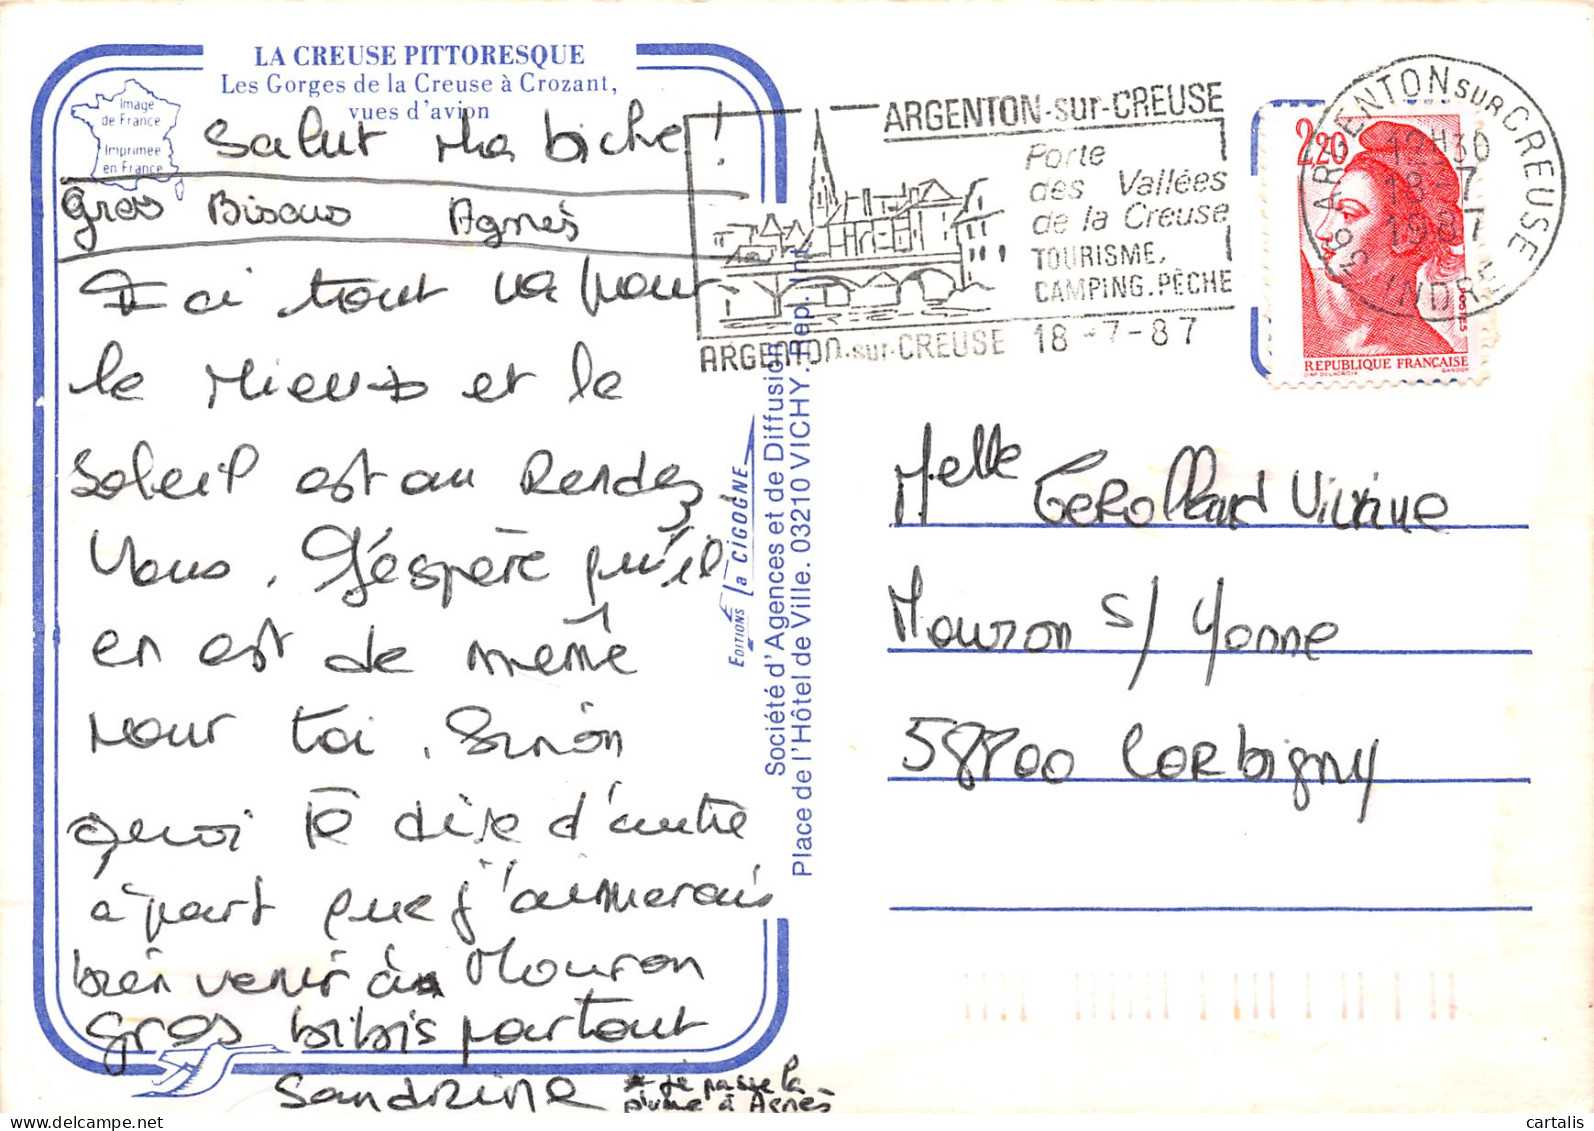 LA CREUSE PITTORESQUE
Les Gorges de la Creuse à Crozant,
vues d'avion
Image
de France
Imprimée
en France
Salut Ma biche !
Gros Bisous Agnès
Ici tout va pour
le Mieux et le
Soleil est au Rendez
Vous. J'éspère qu'il
en est de même
pour toi. Sinon
quoi te dire d'autre
à part que j'aimerais
bien venir à Mouron
Gros bibis partout
Sandrine
* je passe la
plume à Agnès
EDITIONS la CIGOGNE
Société d'Agences et de Diffusion
Place de l'Hôtel de Ville. 03210 VICHY. Rep. Int.
ARGENTON-sur-CREUSE
Porte
des Vallées
de la Creuse
TOURISME,
CAMPING.PÊCHE
ARGENTON-sur-CREUSE 18 -7-87
36 ARGENTON SUR CREUSE
12H30
18-7
1987
INDRE
2,20
POSTES
REPUBLIQUE FRANÇAISE
D'AP. DELACROIX GANDON
Melle Gerollard Viviane
Mouron s/ Yonne
58800 Corbigny
cartalis